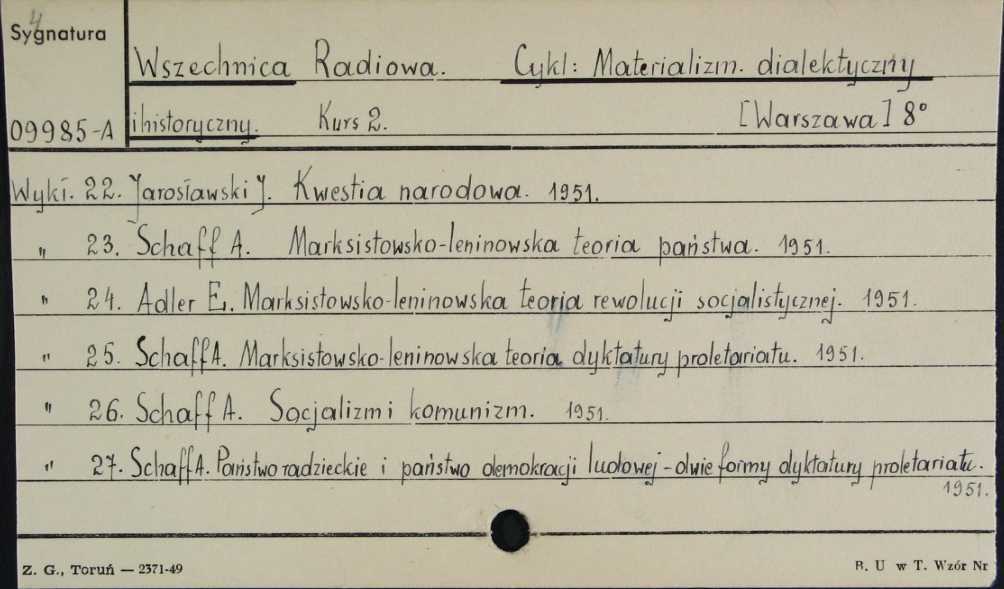 4
Sygnatura
Wszechnica Radiowa. Cykl: Materializm dialektyczny
09985-A i historyczny. Kurs 2. [Warszawa] 8°
Wykł. 22. Jarosławski J. Kwestia narodowa. 1951.
" 23. Schaff A. Marksistowsko-leninowska teoria państwa. 1951.
" 24. Adler E. Marksistowsko-leninowska teoria rewolucji socjalistycznej. 1951.
" 25. Schaff A. Marksistowsko-leninowska teoria dyktatury proletariatu. 1951.
" 26. Schaff A. Socjalizm i komunizm. 1951.
" 27. Schaff A. Państwo radzieckie i państwo demokracji ludowej - dwie formy dyktatury proletariatu.
1951.
Z. G., Toruń — 2371-49 B. U w T. Wzór Nr